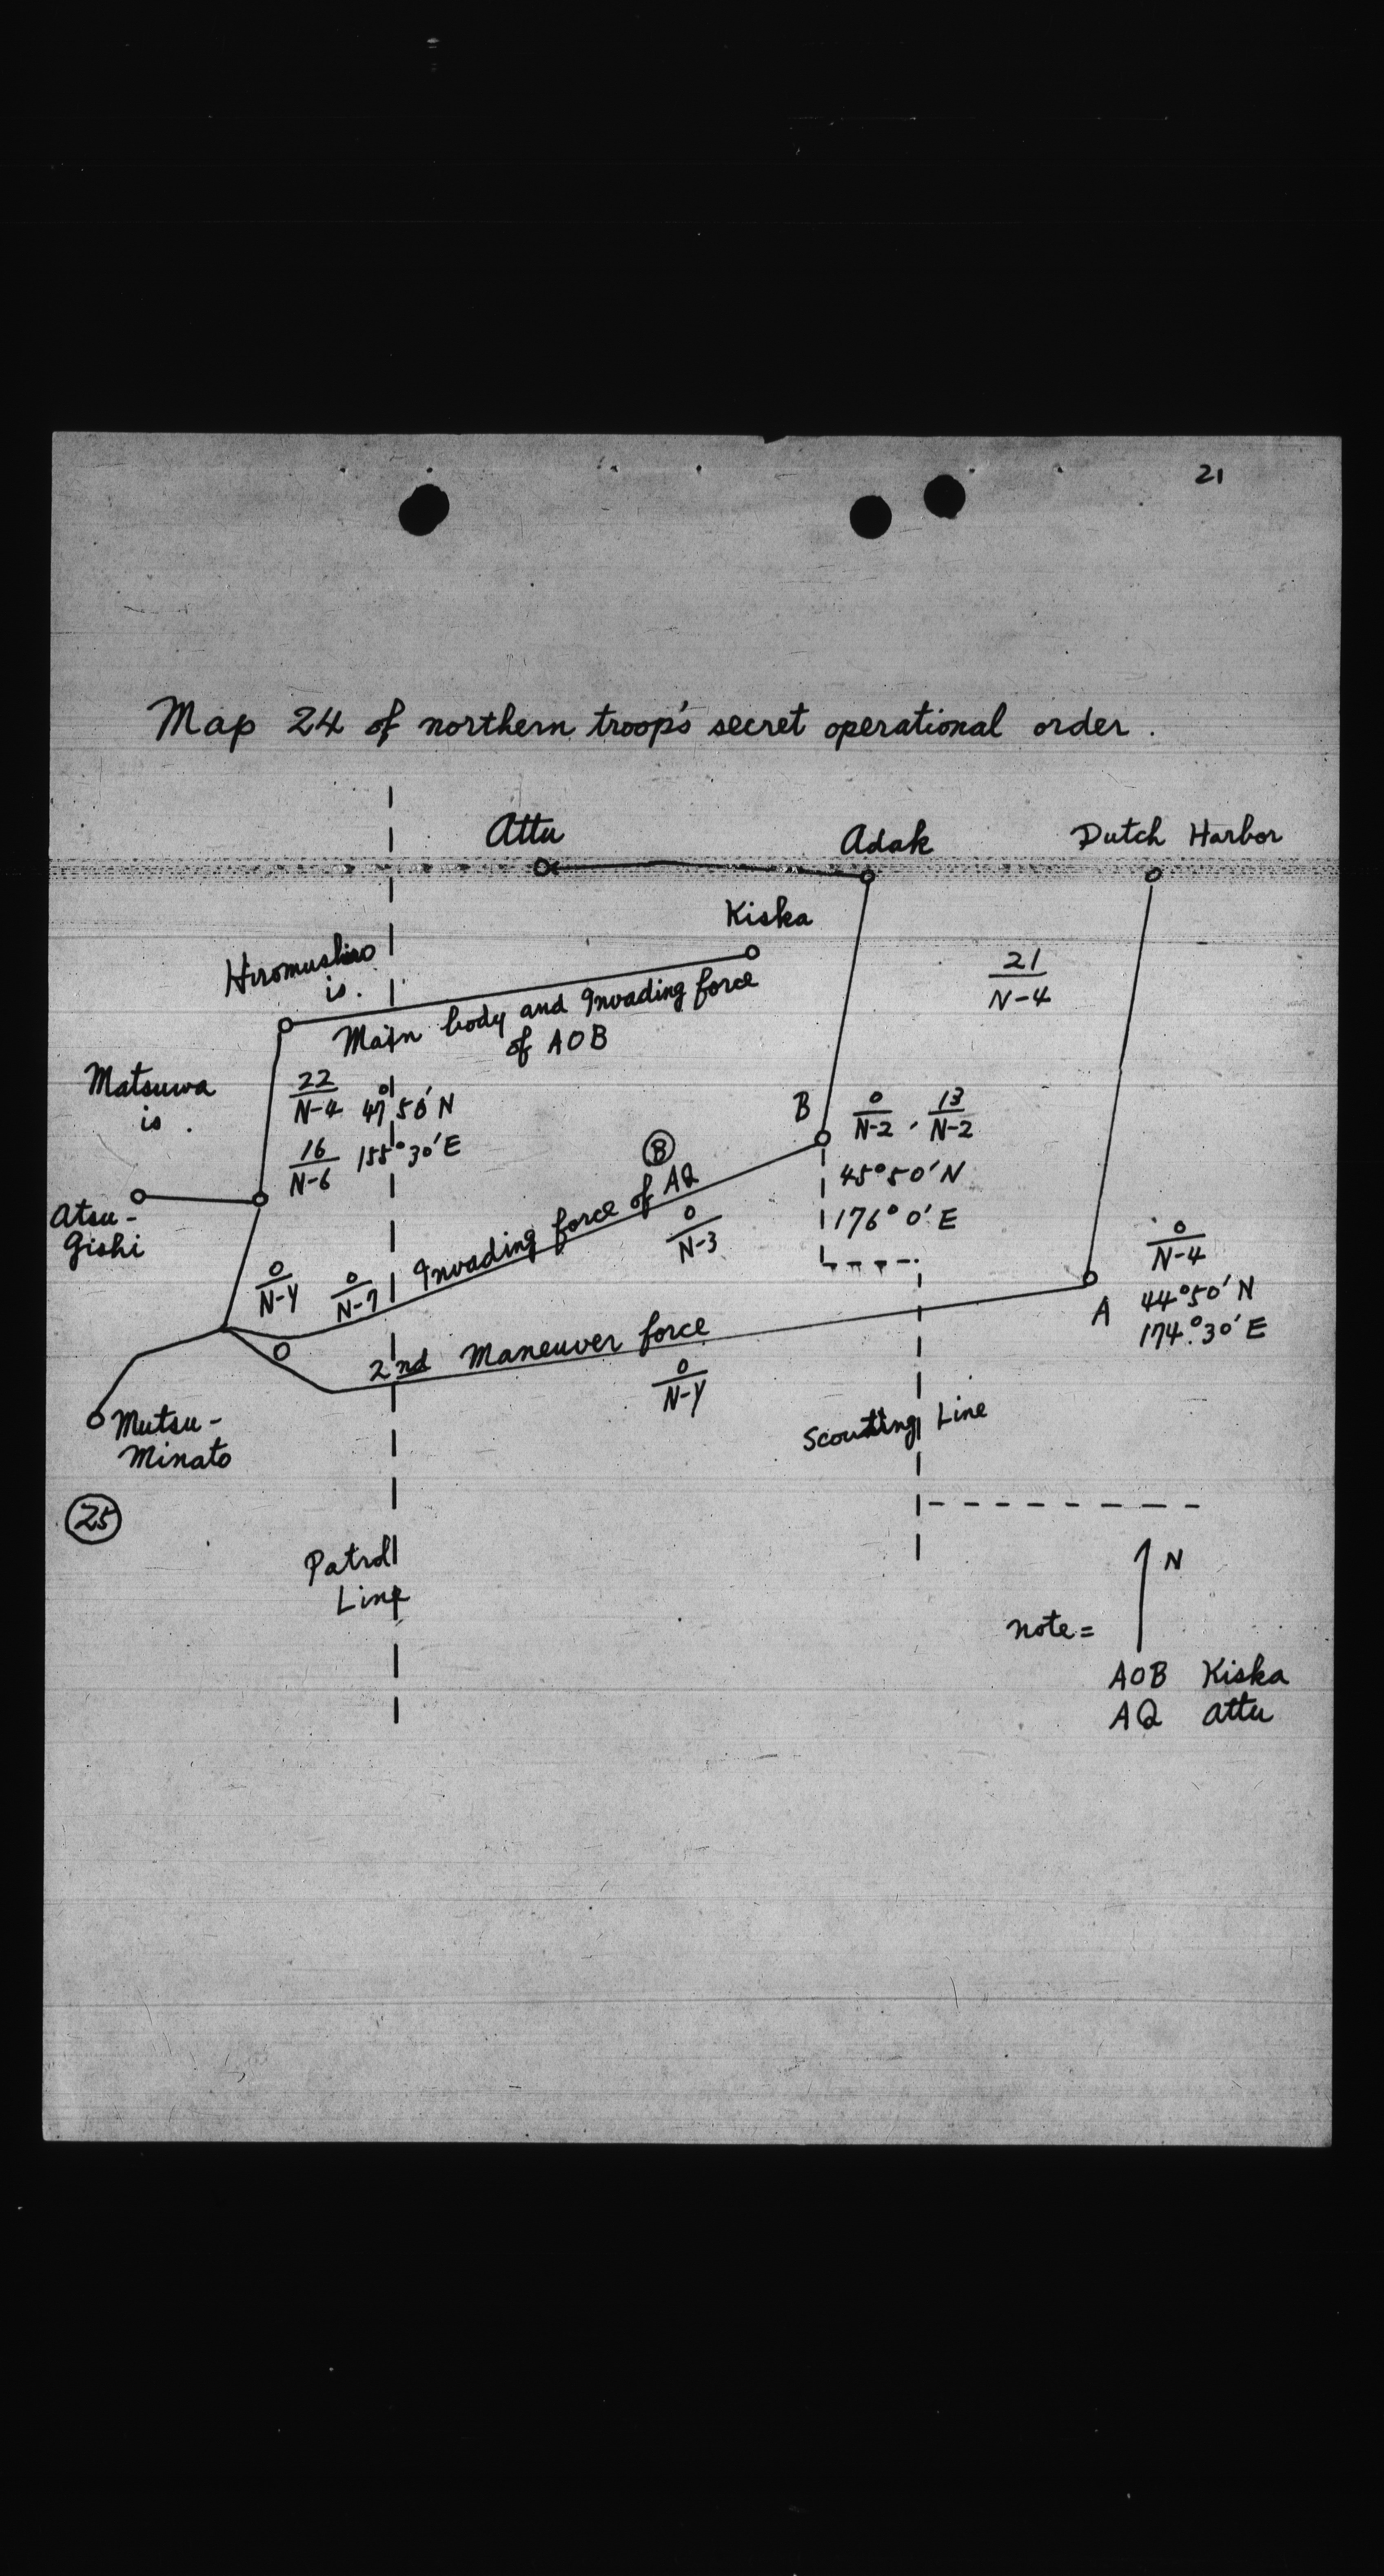 21
Map 24 of northern troop's secret operational order.
Attu
Adak
Dutch Harbor
Kiska
Horomushiro
is.
21
N-4
Main body and Invading force
of AOB
Matsuwa
is.
22
N-4 47°50'N
16
N-6 155°30'E
B
0
N-2
13
N-2
45°50'N
176°0'E
Atsu-
Gishi
B
Invading force of AQ
0
N-3
0
N-4
44°50'N
174°30'E
A
0
N-Y
0
N-7
2nd Maneuver force
0
N-Y
Mutsu-
Minato
Scouting Line
25
Patrol
Line
N
note=
AOB Kiska
AQ Attu